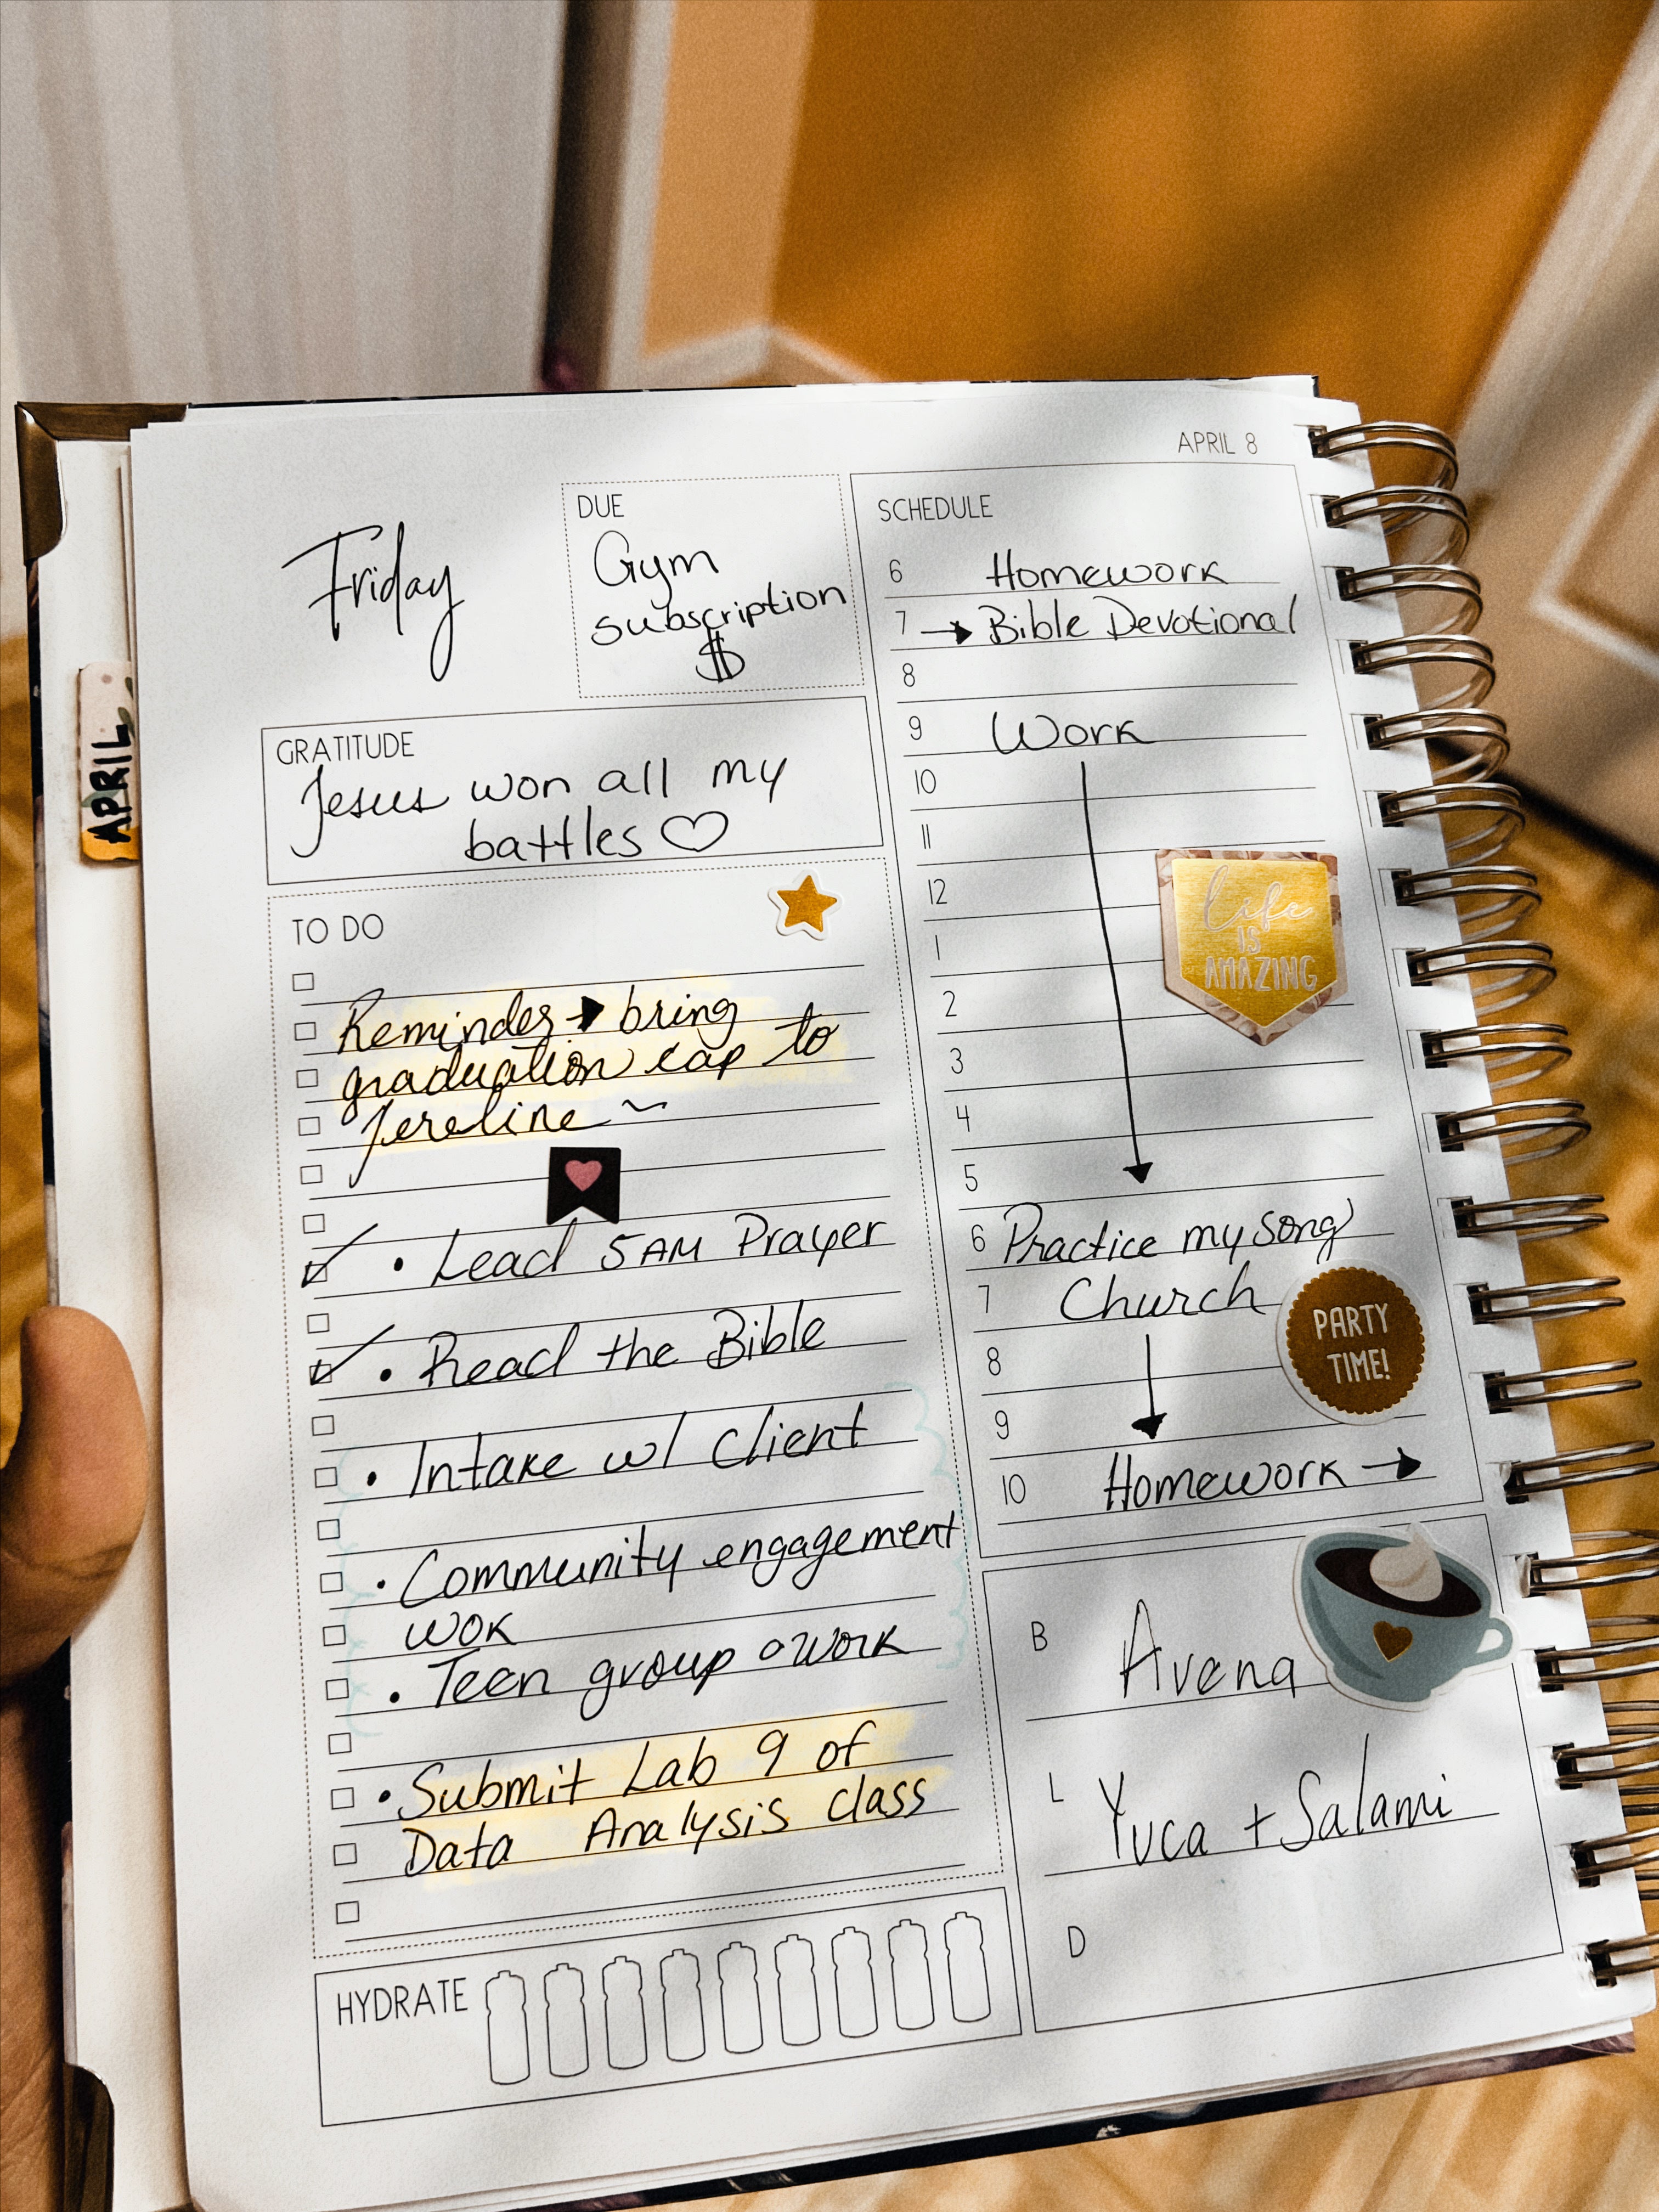 APRIL
APRIL 8
Friday
DUE
Gym
subscription
$
GRATITUDE
Jesus won all my
battles ♡
TO DO
Reminder → bring
graduation cap to
Jereline ~
• Lead 5AM Prayer
• Read the Bible
• Intake w/ client
• Community engagement
wok
• Teen group work
• Submit Lab 9 of
Data Analysis class
HYDRATE
SCHEDULE
6 Homework
7 → Bible Devotional
8
9 Work
10
11
12
1
2
3
4
5
6 Practice my song
7 Church
8
9
10 Homework →
life
IS
AMAZING
PARTY
TIME!
B Avena
L Yuca + Salami
D